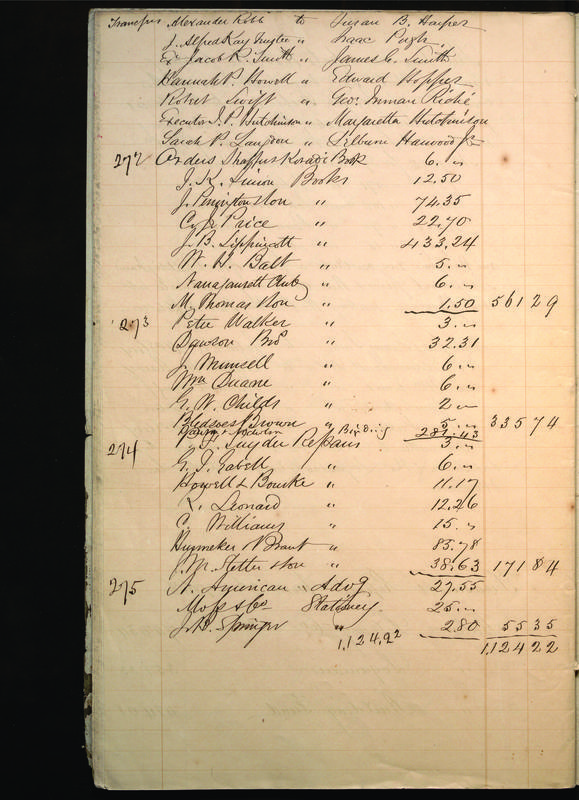 Transfers Alexander Robb to Susan B. Harper
J. Alfred Kay " Isaac Pugh
Exr Jacob R. Smith " James C. Smith
Hannah P. Howell " Edward Hopper
Robert Swift " Geo. Inman Riché
Executor I. P. Hutchinson " Margaretta Hutchinson
Sarah P. Langdon " Harwood Jr
272 Orders Koradi Book 6. "
J. K. Simon Books 12.50
J. Penington & Son " 74.35
Price " 22.70
J. B. Lippincott " 433.24
W. H. Balt " 5. "
Narragansett Club " 6. "
M. Thomas & Son " 1.50 561 29
273 Peter Walker " 3. "
Dawson Bros " 32.31
J. Munsell " 6 "
Wm Duane " 6. "
G. W. Childs " 2 "
Brown " 5. " 335 74
Binding 281.43
274 Snyder Repairs 3. "
G. J. Gabell " 6. "
Howell & Bourke " 11.17
Leonard " 12.26
C. Williams " 15. "
" 85.78
& Son " 38.63 171 84
275 N. American Advg 27.55
Moss & Co Stationery 25. "
Springer " 2.80 55 35
1,124.22 1,124 22